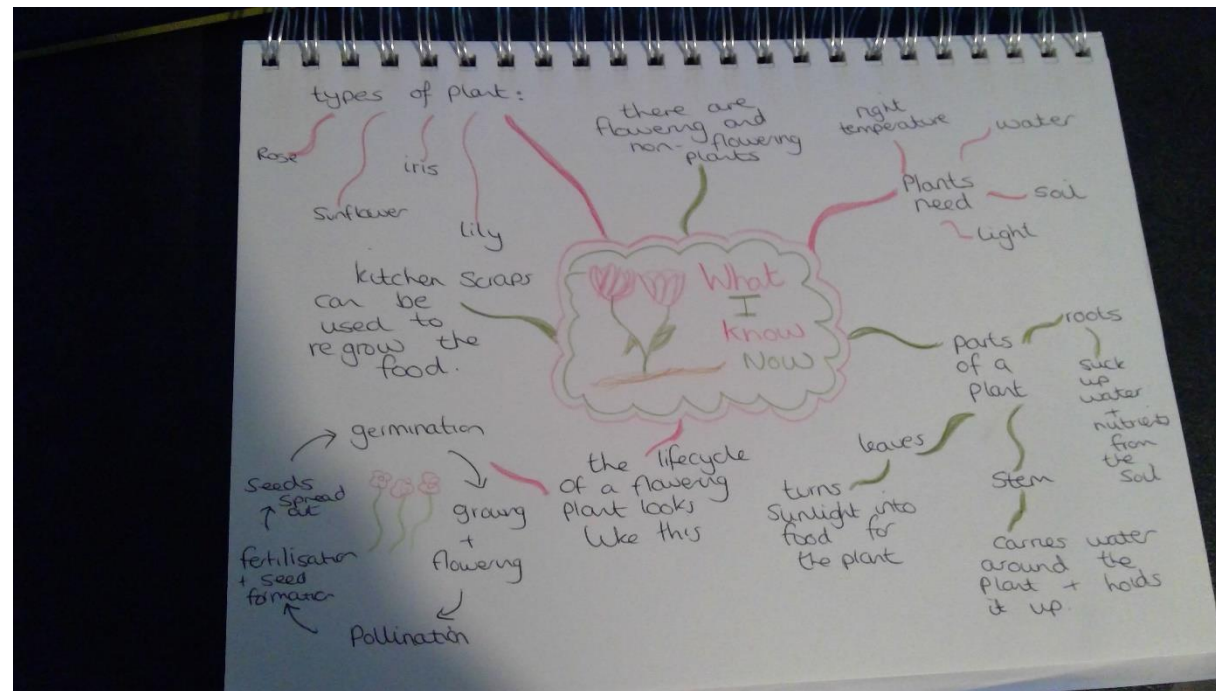 types of plant:
Rose
Sunflower
iris
lily
there are
flowering and
non-flowering
plants
right
temperature
water
Plants
need
soil
light
kitchen scraps
can be
used to
regrow the
food.
What
I
know
Now
parts
of a
plant
roots
suck
up
water
+
nutrients
from
the
soil
leaves
turns
sunlight into
food for
the plant
Stem
carries water
around the
plant + holds
it up.
the lifecycle
of a flowering
plant looks
like this
germination
growing
+
flowering
Pollination
fertilisation
+ seed
formation
Seeds
spread
out